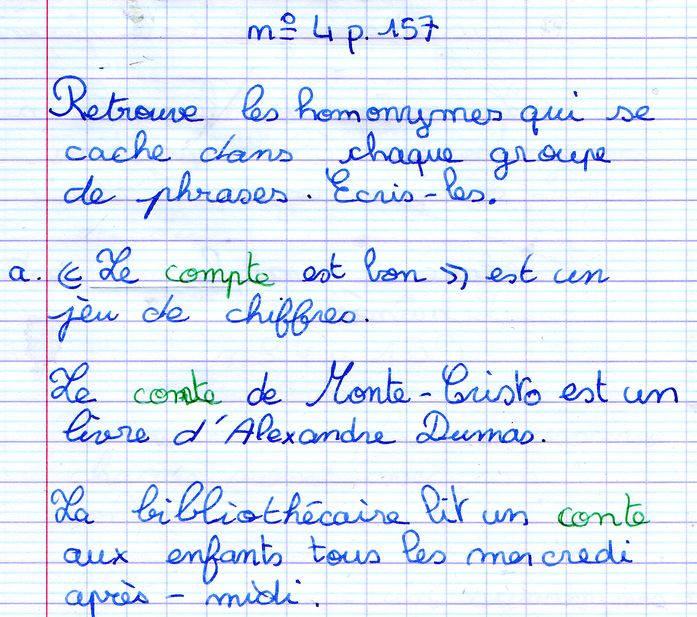 n° 4 p. 157
Retrouve les homonymes qui se
cache dans chaque groupe
de phrases. Ecris-les.
a. « Le compte est bon » est un
jeu de chiffres.
Le comte de Monte-Cristo est un
livre d'Alexandre Dumas.
La bibliothécaire lit un conte
aux enfants tous les mercredi
après-midi.